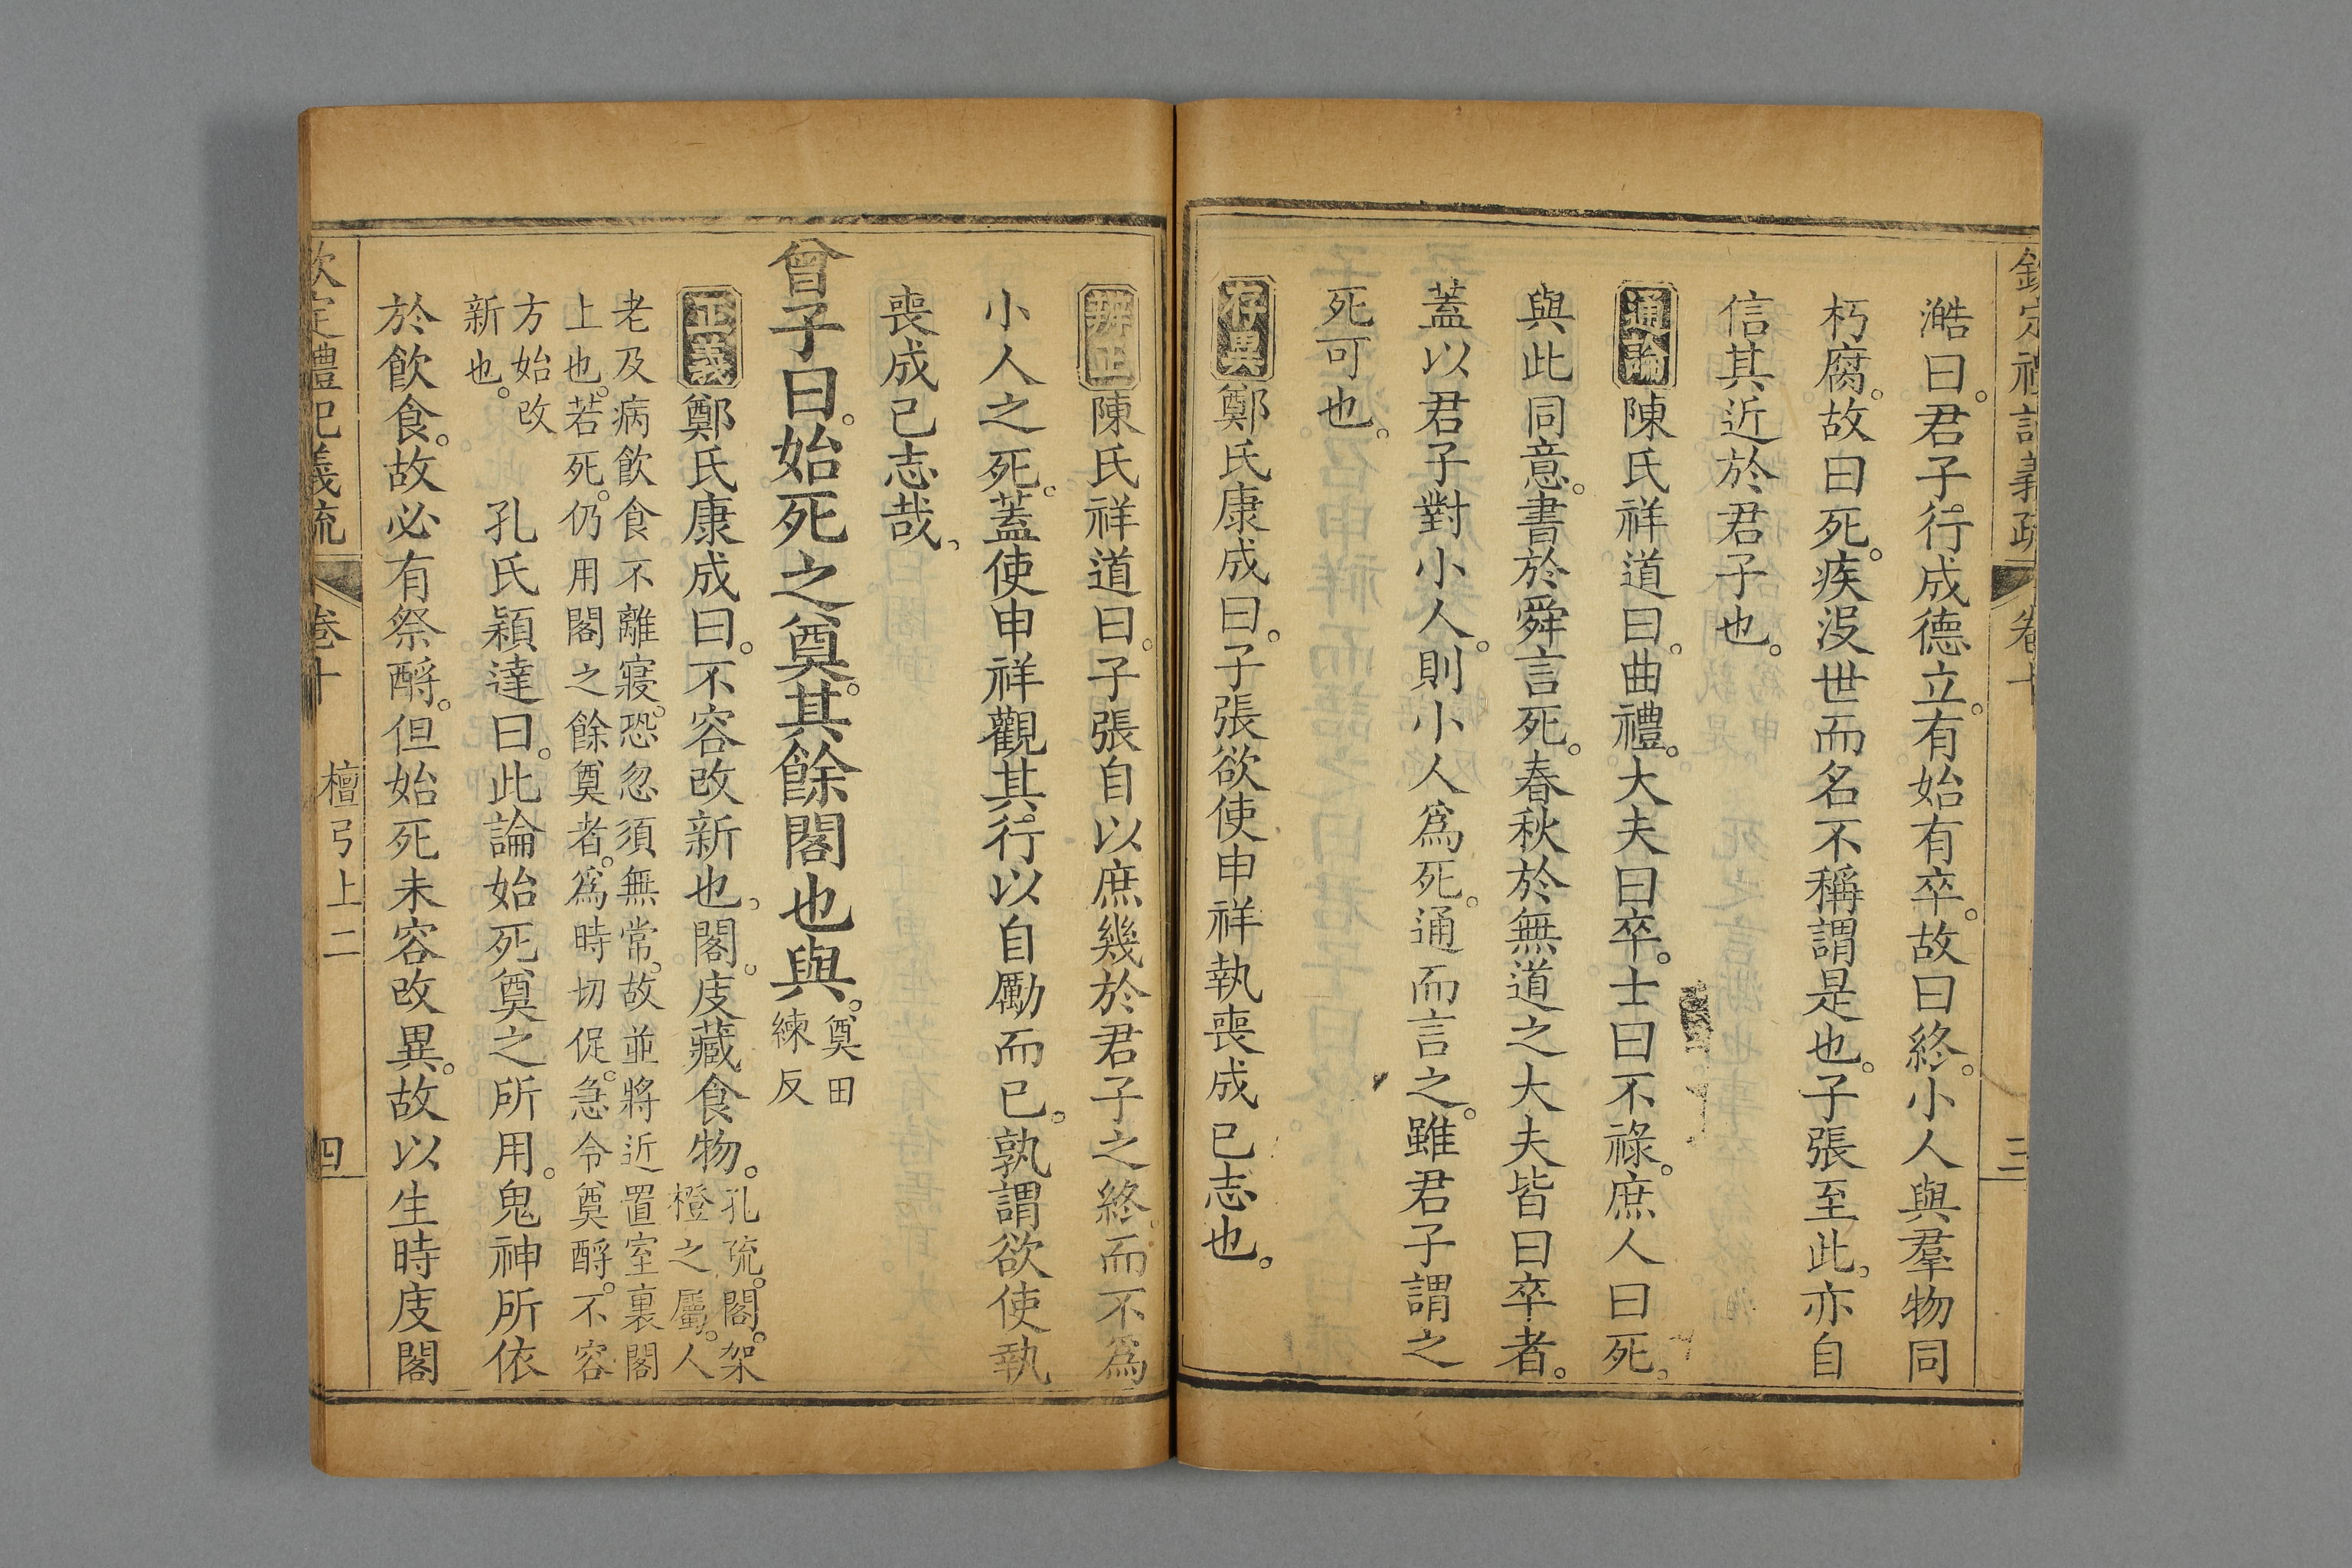 欽定禮記義疏 卷十 三
澔曰。君子行成德立。有始有卒。故曰終。小人與羣物同
朽腐。故曰死。疾沒世而名不稱謂是也。子張至此。亦自
信其近於君子也。
通論陳氏祥道曰。曲禮。大夫曰卒。士曰不祿。庶人曰死。
與此同意。書於舜言死。春秋於無道之大夫皆曰卒者。
蓋以君子對小人。則小人爲死。通而言之。雖君子謂之
死可也。
存異鄭氏康成曰。子張欲使申祥執喪成已志也。
辨正陳氏祥道曰。子張自以庶幾於君子之終。而不爲
小人之死。蓋使申祥觀其行以自勵而已。孰謂欲使執
喪成已志哉。
曾子曰。始死之奠。其餘閣也與。奠田
練反
正義鄭氏康成曰。不容改新也。閣。庋藏食物。孔疏。閣。架
橙之屬。人
老及病飲食不離寢。恐忽須無常。故並將近置室裏閣
上也。若死。仍用閣之餘奠者。爲時切促。急令奠酹。不容
方始改
新也。
孔氏穎達曰。此論始死奠之所用。鬼神所依
於飲食。故必有祭酹。但始死未容改異。故以生時庋閣
欽定禮記義疏 卷十 檀弓上二 四